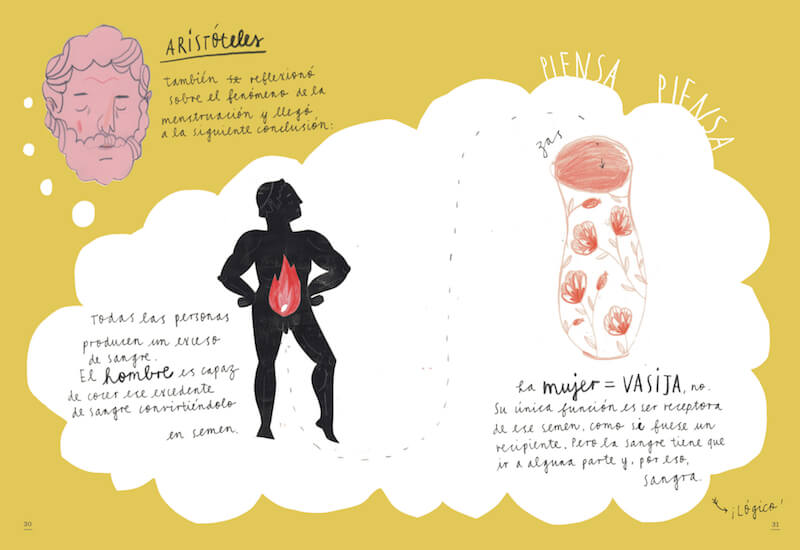 ARISTÓteles
también se reflexionó
sobre el fenómeno de la
menstruación y llegó
a la siguiente conclusión:
PIENSA PIENSA
zas
todas las personas
producen un exceso
de sangre.
El hombre es capaz
de cocer ese excedente
de sangre convirtiéndolo
en semen.
La mujer = VASIJA, no.
Su única función es ser receptora
de ese semen, como si fuese un
recipiente. Pero la sangre tiene que
ir a alguna parte y, por eso,
sangra.
¡LÓGICO!
30
31